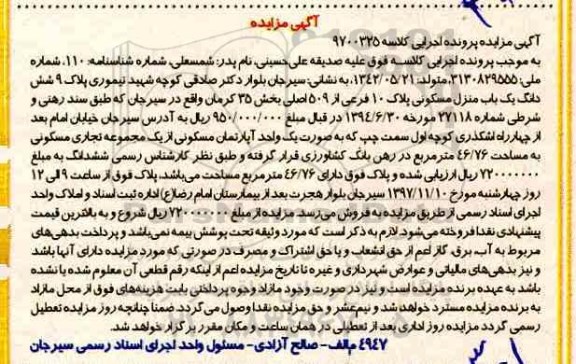 آگهی مزایده
آگهی مزایده پرونده اجرایی کلاسه ۹۷۰۰۳۲۵
به موجب پرونده اجرایی کلاسه فوق علیه صدیقه علی‌حسینی، نام پدر: شمسعلی، شماره شناسنامه: ۱۱۰، شماره
ملی: ۳۱۳۰۸۲۹۵۵۵، متولد: ۱۳۴۲/۰۵/۲۱، به نشانی: سیرجان بلوار دکتر صادقی کوچه شهید تیموری پلاک ۹ شش
دانگ یک باب منزل مسکونی پلاک ۱۰ فرعی از ۵۰۹ اصلی بخش ۳۵ کرمان واقع در سیرجان که طبق سند رهنی و
شرطی شماره ۲۷۱۱۸ مورخه ۱۳۹۴/۶/۳۰ در قبال مبلغ ۹۵۰/۰۰۰/۰۰۰ ریال به آدرس سیرجان خیابان امام بعد
از چهارراه اشکذری کوچه اول سمت چپ که به صورت یک واحد آپارتمان مسکونی از یک مجموعه تجاری مسکونی
به مساحت ۴۶/۷۶ مترمربع در رهن بانک کشاورزی قرار گرفته و طبق نظر کارشناس رسمی ششدانگ به مبلغ
۷۲۰۰۰۰۰۰۰ ریال ارزیابی شده و پلاک فوق دارای ۴۶/۷۶ مترمربع مساحت می‌باشد. پلاک فوق از ساعت ۹ الی ۱۲
روز چهارشنبه مورخ ۱۳۹۷/۱۱/۱۰ سیرجان بلوار هجرت بعد از بیمارستان امام رضا(ع) اداره ثبت اسناد و املاک واحد
اجرای اسناد رسمی از طریق مزایده به فروش می‌رسد. مزایده از مبلغ ۷۲۰۰۰۰۰۰۰ ریال شروع و به بالاترین قیمت
پیشنهادی نقدا فروخته می‌شود. لازم به ذکر است که مورد وثیقه تحت پوشش بیمه نمی‌باشد و پرداخت بدهی‌های
مربوط به آب، برق، گاز اعم از حق انشعاب و یا حق اشتراک و مصرف در صورتی که مورد مزایده دارای آنها باشد
و نیز بدهی‌های مالیاتی و عوارض شهرداری و غیره تا تاریخ مزایده اعم از اینکه رقم قطعی آن معلوم شده یا نشده
باشد به عهده برنده مزایده است و نیز در صورت وجود مازاد وجوه پرداختی بابت هزینه‌های فوق از محل مازاد
به برنده مزایده مسترد خواهد شد و نیم‌عشر و حق مزایده نقدا وصول می‌گردد. ضمنا چنانچه روز مزایده تعطیل
رسمی گردد مزایده روز اداری بعد از تعطیلی در همان ساعت و مکان مقرر برگزار خواهد شد.
۴۹۴۷ م/الف - صالح آزادی - مسئول واحد اجرای اسناد رسمی سیرجان